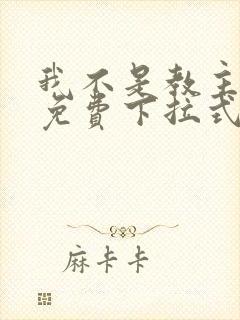 我不是教主
免费下拉式
麻卡卡